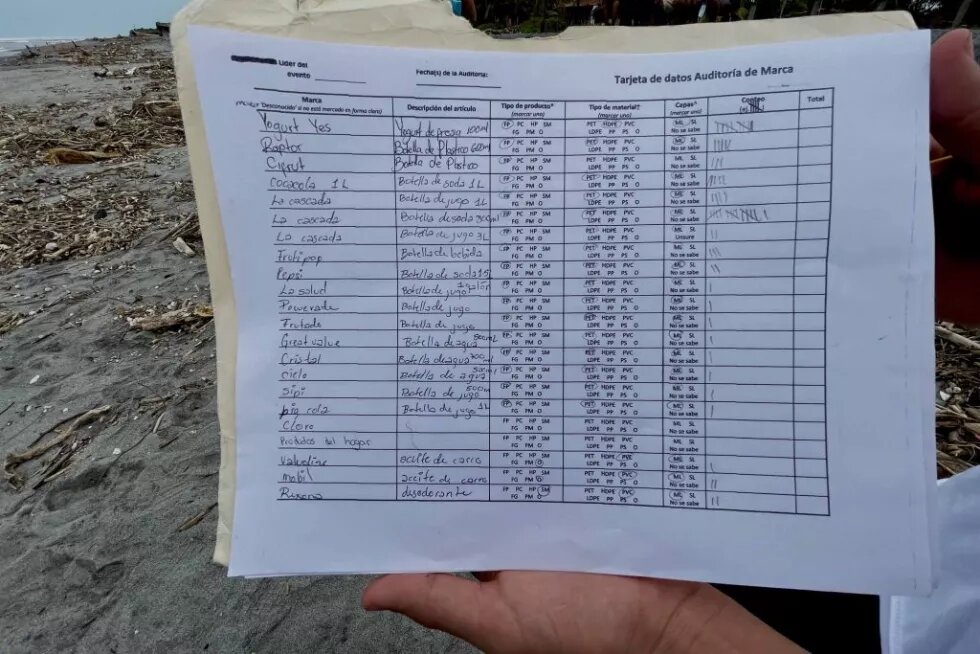 Líder del
evento
Fecha(s) de la Auditoria:
Tarjeta de datos Auditoría de Marca
Marca
'Desconocido' si no está marcado en forma clara)
Descripción del artículo
Tipo de producto*
(marcar uno)
Tipo de material†
(marcar uno)
Capas^
(marcar uno)
Conteo
Total
Yogurt Yes Yogurt de fresa 100ml FP PC HP SM PET HDPE PVC ML SL
FG PM O LDPE PP PS O No se sabe
Raptor Botella de Plastico 600ml FP PC HP SM PET HDPE PVC ML SL
FG PM O LDPE PP PS O No se sabe
Botella de Plastico FP PC HP SM PET HDPE PVC ML SL
FG PM O LDPE PP PS O No se sabe
Cocacola 1L Botella de soda 1L FP PC HP SM PET HDPE PVC ML SL
FG PM O LDPE PP PS O No se sabe
La cascada Botella de jugo 1L FP PC HP SM PET HDPE PVC ML SL
FG PM O LDPE PP PS O No se sabe
La cascada Botella de soda 300ml FP PC HP SM PET HDPE PVC ML SL
FG PM O LDPE PP PS O No se sabe
La cascada Botella de jugo 3L FP PC HP SM PET HDPE PVC ML SL
FG PM O LDPE PP PS O Unsure
Frutipop Botella de bebida FP PC HP SM PET HDPE PVC ML SL
FG PM O LDPE PP PS O No se sabe
Pepsi Botella de soda FP PC HP SM PET HDPE PVC ML SL
FG PM O LDPE PP PS O No se sabe
La salud Botella de jugo 1galón FP PC HP SM PET HDPE PVC ML SL
FG PM O LDPE PP PS O No se sabe
Powerade Botella de jugo FP PC HP SM PET HDPE PVC ML SL
FG PM O LDPE PP PS O No se sabe
Frutado Botella de jugo FP PC HP SM PET HDPE PVC ML SL
FG PM O LDPE PP PS O No se sabe
Great value Botella de agua 500ml FP PC HP SM PET HDPE PVC ML SL
FG PM O LDPE PP PS O No se sabe
Cristal Botella de agua 700ml FP PC HP SM PET HDPE PVC ML SL
FG PM O LDPE PP PS O No se sabe
cielo Botella de agua 500ml FP PC HP SM PET HDPE PVC ML SL
FG PM O LDPE PP PS O No se sabe
Sipi Botella de jugo 500ml FP PC HP SM PET HDPE PVC ML SL
FG PM O LDPE PP PS O No se sabe
big cola Botella de jugo 1L FP PC HP SM PET HDPE PVC ML SL
FG PM O LDPE PP PS O No se sabe
Cloro FP PC HP SM PET HDPE PVC ML SL
FG PM O LDPE PP PS O No se sabe
Productos del hogar FP PC HP SM PET HDPE PVC ML SL
FG PM O LDPE PP PS O No se sabe
Valvoline aceite de carro FP PC HP SM PET HDPE PVC ML SL
FG PM O LDPE PP PS O No se sabe
mobil aceite de carro FP PC HP SM PET HDPE PVC ML SL
FG PM O LDPE PP PS O No se sabe
Rexona desodorante FP PC HP SM PET HDPE PVC ML SL
FG PM O LDPE PP PS O No se sabe